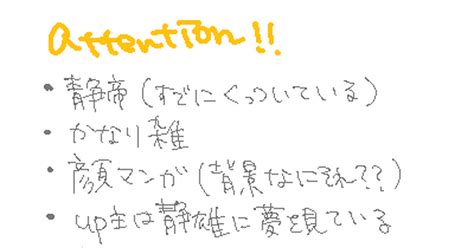 attention!!
・静帝(すでにくっついている)
・かなり雑
・顔マンガ(背景なにそれ??)
・up主は静雄に夢を見ている